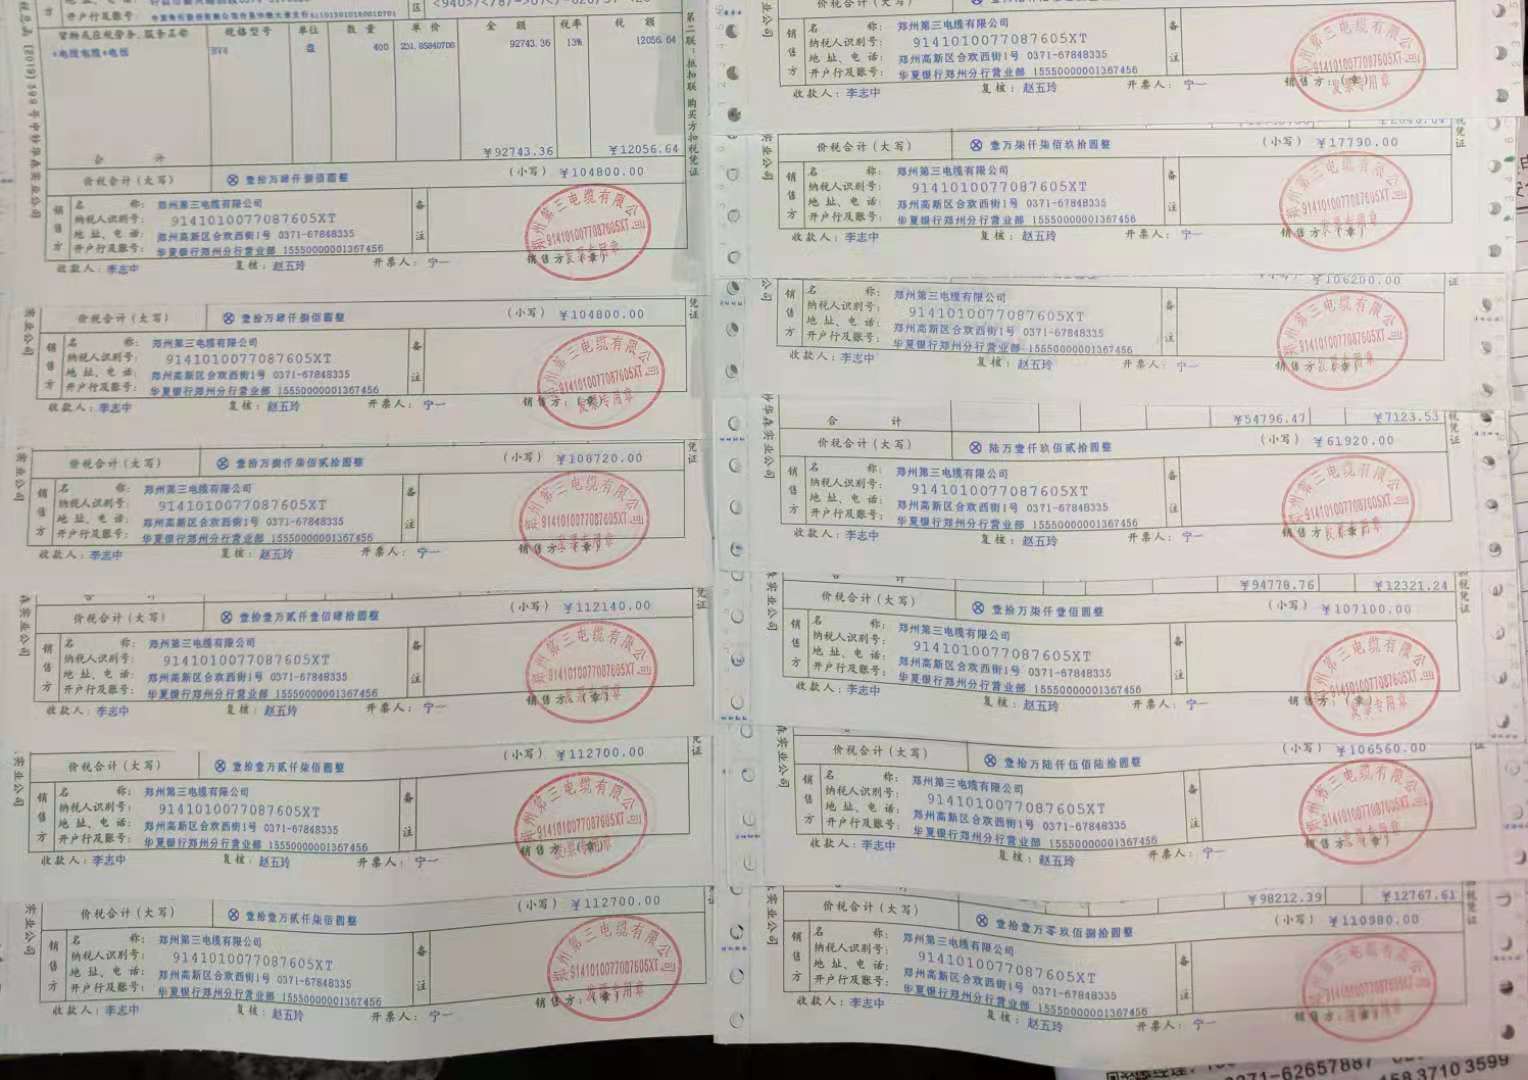 货物或应税劳务、服务名称 规格型号 单位 数量 单价 金额 税率 税额
*电线电缆*电线 BV4 盘 400 92743.36 13% 12056.64
合计 ¥92743.36 ¥12056.64
价税合计(大写) ⊗ 壹拾万肆仟捌佰圆整 (小写) ¥104800.00
名称: 郑州第三电缆有限公司
纳税人识别号: 9141010077087605XT
地址、电话: 郑州高新区合欢西街1号 0371-67848335
开户行及账号: 华夏银行郑州分行营业部 15550000001367456
收款人:李志中 复核:赵五玲 开票人:宁一 销售方:(章)
价税合计(大写) ⊗ 壹拾万肆仟捌佰圆整 (小写) ¥104800.00
名称: 郑州第三电缆有限公司
纳税人识别号: 9141010077087605XT
地址、电话: 郑州高新区合欢西街1号 0371-67848335
开户行及账号: 华夏银行郑州分行营业部 15550000001367456
收款人:李志中 复核:赵五玲 开票人:宁一 销售方:(章)
价税合计(大写) ⊗ 壹拾万捌仟柒佰贰拾圆整 (小写) ¥108720.00
名称: 郑州第三电缆有限公司
纳税人识别号: 9141010077087605XT
地址、电话: 郑州高新区合欢西街1号 0371-67848335
开户行及账号: 华夏银行郑州分行营业部 15550000001367456
收款人:李志中 复核:赵五玲 开票人:宁一 销售方:(章)
价税合计(大写) ⊗ 壹拾壹万贰仟壹佰肆拾圆整 (小写) ¥112140.00
名称: 郑州第三电缆有限公司
纳税人识别号: 9141010077087605XT
地址、电话: 郑州高新区合欢西街1号 0371-67848335
开户行及账号: 华夏银行郑州分行营业部 15550000001367456
收款人:李志中 复核:赵五玲 开票人:宁一 销售方:(章)
价税合计(大写) ⊗ 壹拾壹万贰仟柒佰圆整 (小写) ¥112700.00
名称: 郑州第三电缆有限公司
纳税人识别号: 9141010077087605XT
地址、电话: 郑州高新区合欢西街1号 0371-67848335
开户行及账号: 华夏银行郑州分行营业部 15550000001367456
收款人:李志中 复核:赵五玲 开票人:宁一 销售方:(章)
价税合计(大写) ⊗ 壹拾壹万贰仟柒佰圆整 (小写) ¥112700.00
名称: 郑州第三电缆有限公司
纳税人识别号: 9141010077087605XT
地址、电话: 郑州高新区合欢西街1号 0371-67848335
开户行及账号: 华夏银行郑州分行营业部 15550000001367456
收款人:李志中 复核:赵五玲 开票人:宁一 销售方:(章)
名称: 郑州第三电缆有限公司
纳税人识别号: 9141010077087605XT
地址、电话: 郑州高新区合欢西街1号 0371-67848335
开户行及账号: 华夏银行郑州分行营业部 15550000001367456
收款人:李志中 复核:赵五玲 开票人:宁一 销售方:(章)
价税合计(大写) ⊗ 壹万柒仟柒佰玖拾圆整 (小写) ¥17790.00
名称: 郑州第三电缆有限公司
纳税人识别号: 9141010077087605XT
地址、电话: 郑州高新区合欢西街1号 0371-67848335
开户行及账号: 华夏银行郑州分行营业部 15550000001367456
收款人:李志中 复核:赵五玲 开票人:宁一 销售方:(章)
(小写) ¥106200.00
名称: 郑州第三电缆有限公司
纳税人识别号: 9141010077087605XT
地址、电话: 郑州高新区合欢西街1号 0371-67848335
开户行及账号: 华夏银行郑州分行营业部 15550000001367456
收款人:李志中 复核:赵五玲 开票人:宁一 销售方:(章)
合计 ¥54796.47 ¥7123.53
价税合计(大写) ⊗ 陆万壹仟玖佰贰拾圆整 (小写) ¥61920.00
名称: 郑州第三电缆有限公司
纳税人识别号: 9141010077087605XT
地址、电话: 郑州高新区合欢西街1号 0371-67848335
开户行及账号: 华夏银行郑州分行营业部 15550000001367456
收款人:李志中 复核:赵五玲 开票人:宁一 销售方:(章)
合计 ¥94778.76 ¥12321.24
价税合计(大写) ⊗ 壹拾万柒仟壹佰圆整 (小写) ¥107100.00
名称: 郑州第三电缆有限公司
纳税人识别号: 9141010077087605XT
地址、电话: 郑州高新区合欢西街1号 0371-67848335
开户行及账号: 华夏银行郑州分行营业部 15550000001367456
收款人:李志中 复核:赵五玲 开票人:宁一 销售方:(章)
价税合计(大写) ⊗ 壹拾万陆仟伍佰陆拾圆整 (小写) ¥106560.00
名称: 郑州第三电缆有限公司
纳税人识别号: 9141010077087605XT
地址、电话: 郑州高新区合欢西街1号 0371-67848335
开户行及账号: 华夏银行郑州分行营业部 15550000001367456
收款人:李志中 复核:赵五玲 开票人:宁一 销售方:(章)
¥98212.39 ¥12767.61
价税合计(大写) ⊗ 壹拾壹万零玖佰捌拾圆整 (小写) ¥110980.00
名称: 郑州第三电缆有限公司
纳税人识别号: 9141010077087605XT
地址、电话: 郑州高新区合欢西街1号 0371-67848335
开户行及账号: 华夏银行郑州分行营业部 15550000001367456
收款人:李志中 复核:赵五玲 开票人:宁一
0371-62657887
15837103599